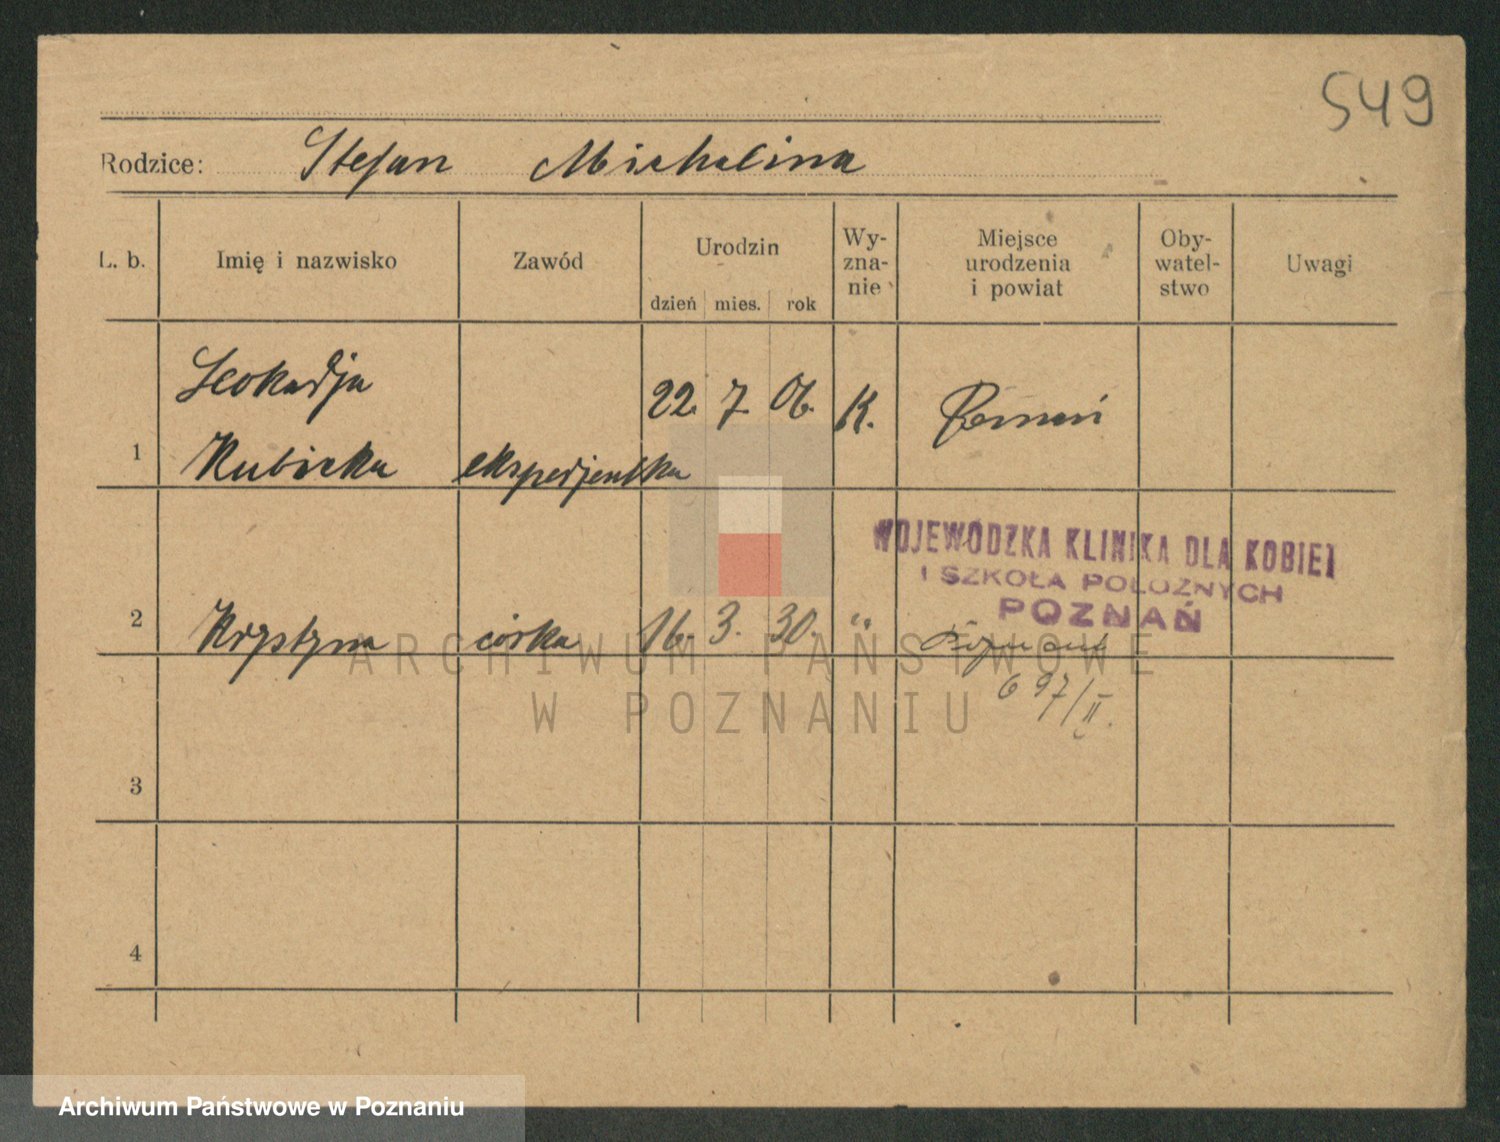 549
Rodzice: Stefan Michalina
L. b. Imię i nazwisko Zawód Urodzin dzień mies. rok Wy-zna-nie Miejsce urodzenia i powiat Oby-watel-stwo Uwagi
Leokadja
22. 7 06. K. Poznań
1 Kubicka ekspedjentka
WOJEWÓDZKA KLINIKA DLA KOBIET
I SZKOŁA POŁOŻNYCH
POZNAŃ
2 Krystyna córka 16. 3. 30. "
697/II.
3
4
ARCHIWUM PAŃSTWOWE
W POZNANIU
Archiwum Państwowe w Poznaniu